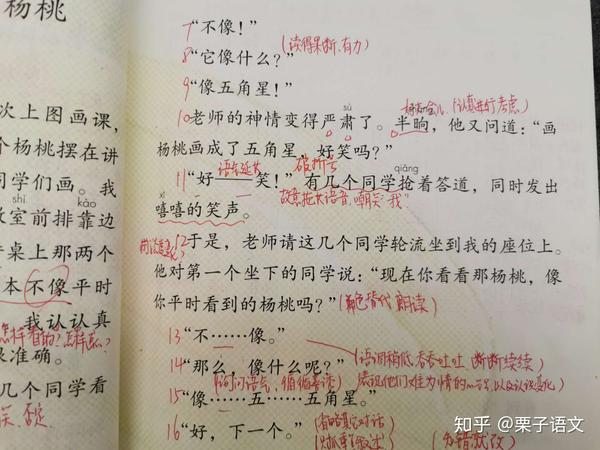 杨桃
次上图画课，
个杨桃摆在讲
同学们画。我
shì kào
教室前排靠边
讲桌上那两个
本不像平时
我认认真
很准确。
几个同学看
7 “不像！”
（读得果断、有力）
8 “它像什么？”
9 “像五角星！”
（认真进行考虑）
sù
10 老师的神情变得严肃了。半晌，他又问道：“画
杨桃画成了五角星，好笑吗？”
语气延长 破折号
qiāng
11 “好——笑！”有几个同学抢着答道，同时发出
故意拖长语音，嘲笑“我”
xī
嘻嘻的笑声。
12 于是，老师请这几个同学轮流坐到我的座位上。
他对第一个坐下的同学说：“现在你看看那杨桃，像
你平时看到的杨桃吗？”
朗读）
13 “不……像。”
（语调稍低 吞吞吐吐 断断续续）
14 “那么，像什么呢？”
15 “像……五……五角星。”
16 “好，下一个。”
（省略其它对话）
知乎 @栗子语文